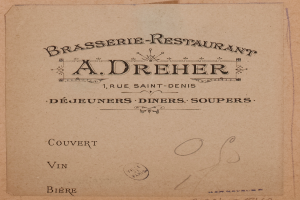 BRASSERIE-RESTAURANT
A. DREHER
1, RUE SAINT-DENIS
DÉJEUNERS · DINERS · SOUPERS
COUVERT
VIN
BIÈRE